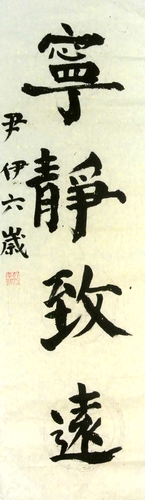 寧靜致遠
尹伊六歲